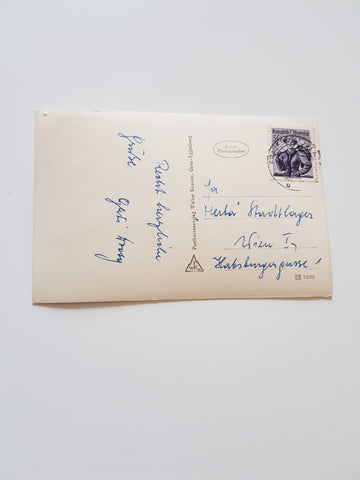 Recht herzliche
Grüße
Postkartenverlag Walter Kramer, Graz-Eggenberg
Echte
Photographie
Republik Österreich
Fa.
Merta Stadtlager
Wien I,
Habsburgergasse!